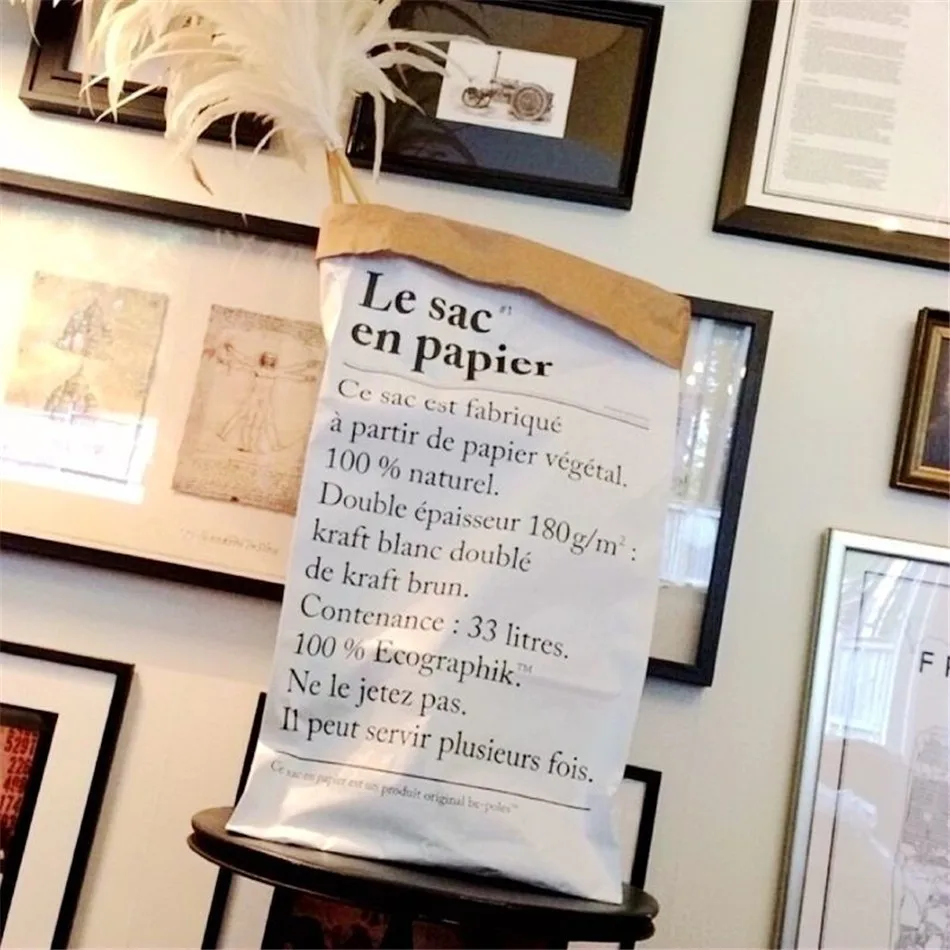 Le sac #1
en papier
Ce sac est fabriqué
à partir de papier végétal.
100 % naturel.
Double épaisseur 180g/m² :
kraft blanc doublé
de kraft brun.
Contenance : 33 litres.
100 % Ecographik.™
Ne le jetez pas.
Il peut servir plusieurs fois.
Ce sac en papier est un produit original be-poles™
F